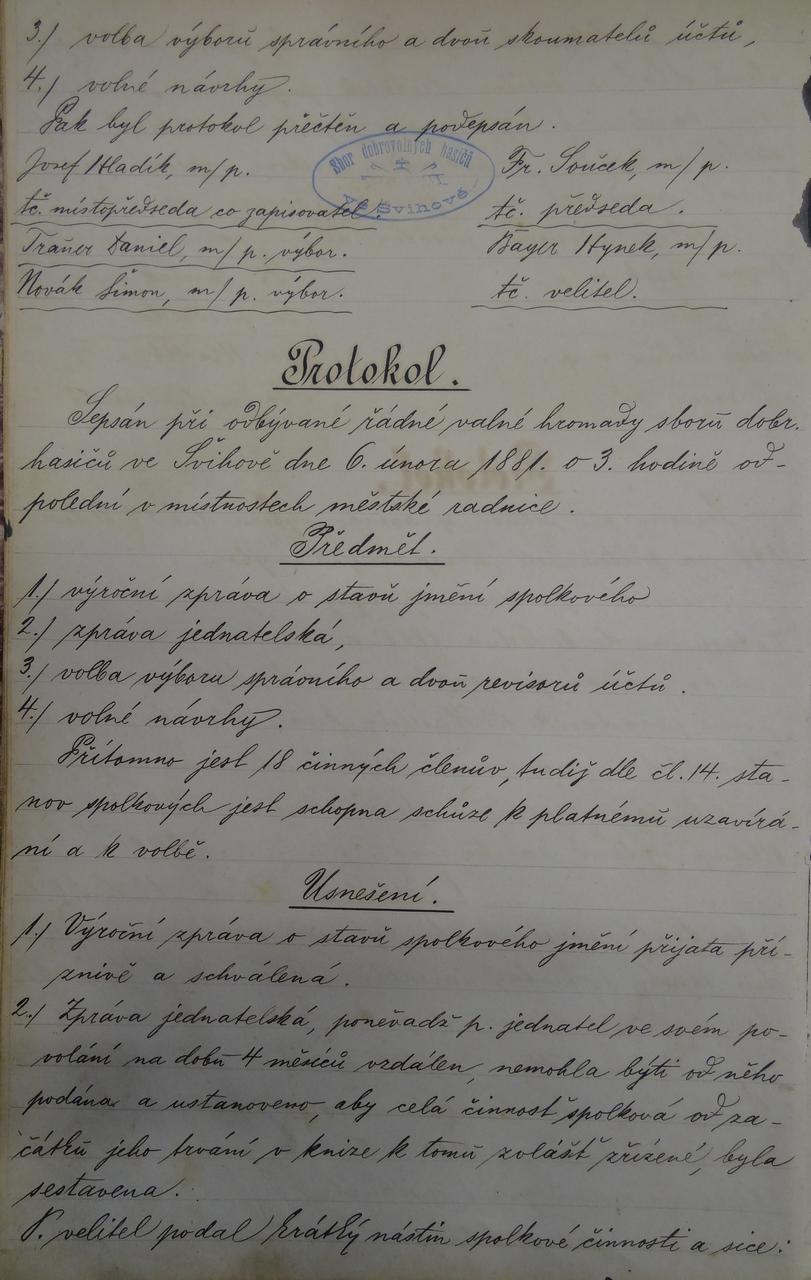 3./ volba výboru správního a dvou skoumatelů účtů,
4./ volné návrhy.
Pak byl protokol přečtěn a podepsán.
Sbor dobrovolných hasičů
ve Švihově
Josef Hladík, m/p.
Fr. Souček, m/p.
tč. místopředseda co zapisovatel.
tč. předseda.
Daniel, m/p. výbor.
Bayer Hynek, m/p.
Novák Šimon, m/p. výbor.
tč. velitel.
Protokol.
Sepsán při odbývané řádné valné hromady sboru dobr.
hasičů ve Švihově dne 6. února 1881. o 3. hodině od-
polední v místnostech městské radnice.
Předmět.
1./ výroční zpráva o stavu jmění spolkového
2./ zpráva jednatelská,
3./ volba výboru správního a dvou revisorů účtů.
4./ volné návrhy.
Přítomno jest 18 činných členův, tudíž dle čl. 14. sta-
nov spolkových jest schopna schůze k platnému uzavírá-
ní a k volbě.
Usnešení.
1./ Výroční zpráva o stavu spolkového jmění přijata pří-
znivě a schválená.
2./ Zpráva jednatelská, poněvadž p. jednatel ve svém po-
volání na dobu 4 měsíců vzdálen, nemohla býti od něho
podána a ustanoveno, aby celá činnost spolková od za-
čátku jeho trvání v knize k tomu zvlášť zřízené, byla
sestavena.
P. velitel podal krátký nástin spolkové činnosti a sice: